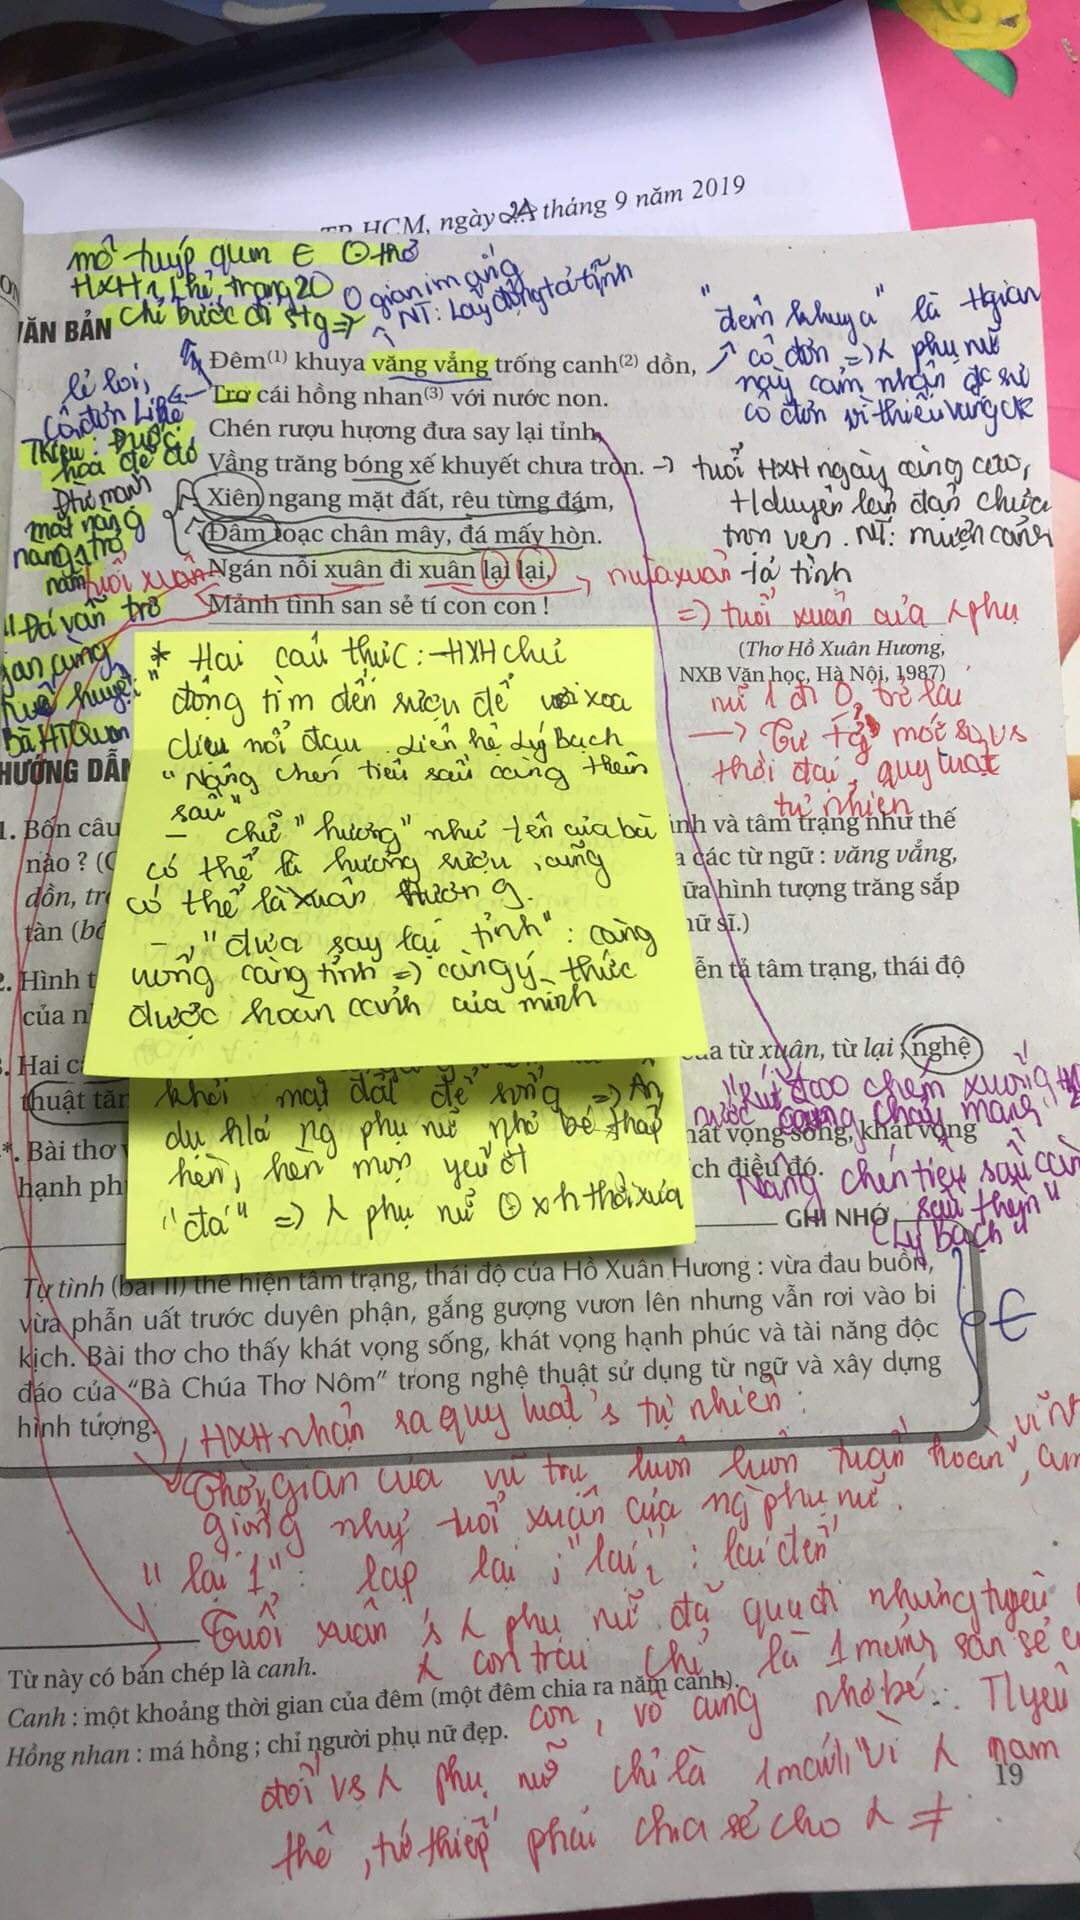 TP. HCM, ngày 24 tháng 9 năm 2019
mô tuýp quen ∈ thơ
HXH 1 chỉ trạng
chỉ bước đi
NT: Lấy động tả tĩnh
VĂN BẢN
Đêm(1) khuya văng vẳng trống canh(2) dồn,
Trơ cái hồng nhan(3) với nước non.
Chén rượu hương đưa say lại tỉnh,
Vầng trăng bóng xế khuyết chưa tròn.
Xiên ngang mặt đất, rêu từng đám,
Đâm toạc chân mây, đá mấy hòn.
Ngán nỗi xuân đi xuân lại lại,
Mảnh tình san sẻ tí con con !
"đêm khuya" là tgian
cô đơn => phụ nữ
ngày cảm nhận đc sự
cô đơn vì thiếu vắng
→ tuổi HXH ngày càng cao,
duyên lận đận chưa
trọn vẹn. NT: mượn cảnh
tả tình
lẻ loi,
cô đơn Liên
tuổi xuân
Đá vẫn trơ
gan cùng
tuế nguyệt"
Bà HTQuan
mùa xuân
=> tuổi xuân của phụ
nữ 1 đi 0 trở lại
(Thơ Hồ Xuân Hương,
NXB Văn học, Hà Nội, 1987)
thời đại, quy luật
tự nhiên
* Hai câu thực: HXH chủ
động tìm đến rượu để xoa
dịu nỗi đau. Liên hệ Lý Bạch
"Nâng chén tiêu sầu càng thêm
sầu"
– chữ "hương" như tên của bà
có thể là hương rượu, cũng
có thể là xuân hương.
– "đưa say lại tỉnh": càng
uống càng tỉnh => càng ý thức
được hoàn cảnh của mình
khỏi mặt đất để sống => Ẩn
dụ h/á ng phụ nữ nhỏ bé, thấp
hèn, hèn mọn yếu ớt
"đá" => phụ nữ xh thời xưa
HƯỚNG DẪN
1. Bốn câu
nào ? (
dồn, tr
tàn (b
inh và tâm trạng như thế
các từ ngữ : văng vẳng,
ữa hình tượng trăng sắp
ữ sĩ.)
2. Hình t
của n
ễn tả tâm trạng, thái độ
Hai c
thuật tăn
từ xuân, từ lại ; nghệ
Bài thơ
hạnh ph
hát vọng sống, khát vọng
ch điều đó.
"Rút đao chém xuống
nước càng chảy mạnh
Nâng chén tiêu sầu càn
sầu thêm"
(Lý Bạch
GHI NHỚ
Tự tình (bài II) thể hiện tâm trạng, thái độ của Hồ Xuân Hương : vừa đau buồn,
vừa phẫn uất trước duyên phận, gắng gượng vươn lên nhưng vẫn rơi vào bi
kịch. Bài thơ cho thấy khát vọng sống, khát vọng hạnh phúc và tài năng độc
đáo của "Bà Chúa Thơ Nôm" trong nghệ thuật sử dụng từ ngữ và xây dựng
hình tượng.
HXH nhận ra quy luật 's tự nhiên:
Thời gian của vũ trụ luôn luôn tuần hoàn,
giống như tuổi xuân của ng phụ nữ.
"lại 1": lặp lại ; "lại 2": lại đến
Tuổi xuân 's phụ nữ đã qua đi nhưng
chỉ là 1 mảnh san sẻ
con, vô cùng nhỏ bé.
đối vs phụ nữ chỉ là 1 mảnh vì nam
thê, tứ thiếp phải chia sẻ cho ≠
Từ này có bản chép là canh.
Canh : một khoảng thời gian của đêm (một đêm chia ra năm canh).
Hồng nhan : má hồng ; chỉ người phụ nữ đẹp.
19